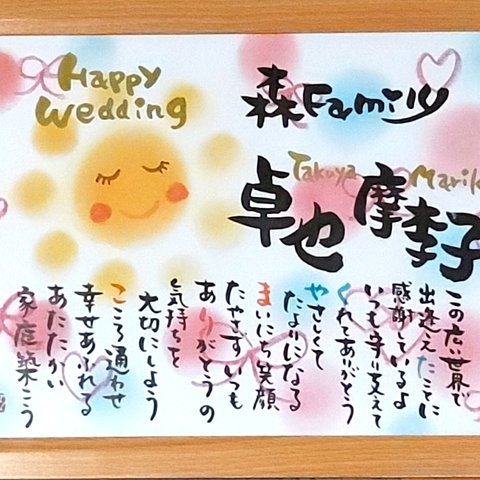 Happy
Wedding
森Family
Takuya
卓也
Mariko
摩李子
この広い世界で
出逢えたことに
感謝しているよ
いつも守り支えて
くれてありがとう
やさしくて
たよりになる
まいにち笑顔
たやさずいつも
ありがとうの
気持ちを
大切にしよう
こころ通わせ
幸せあふれる
あたたかい
家庭築こう